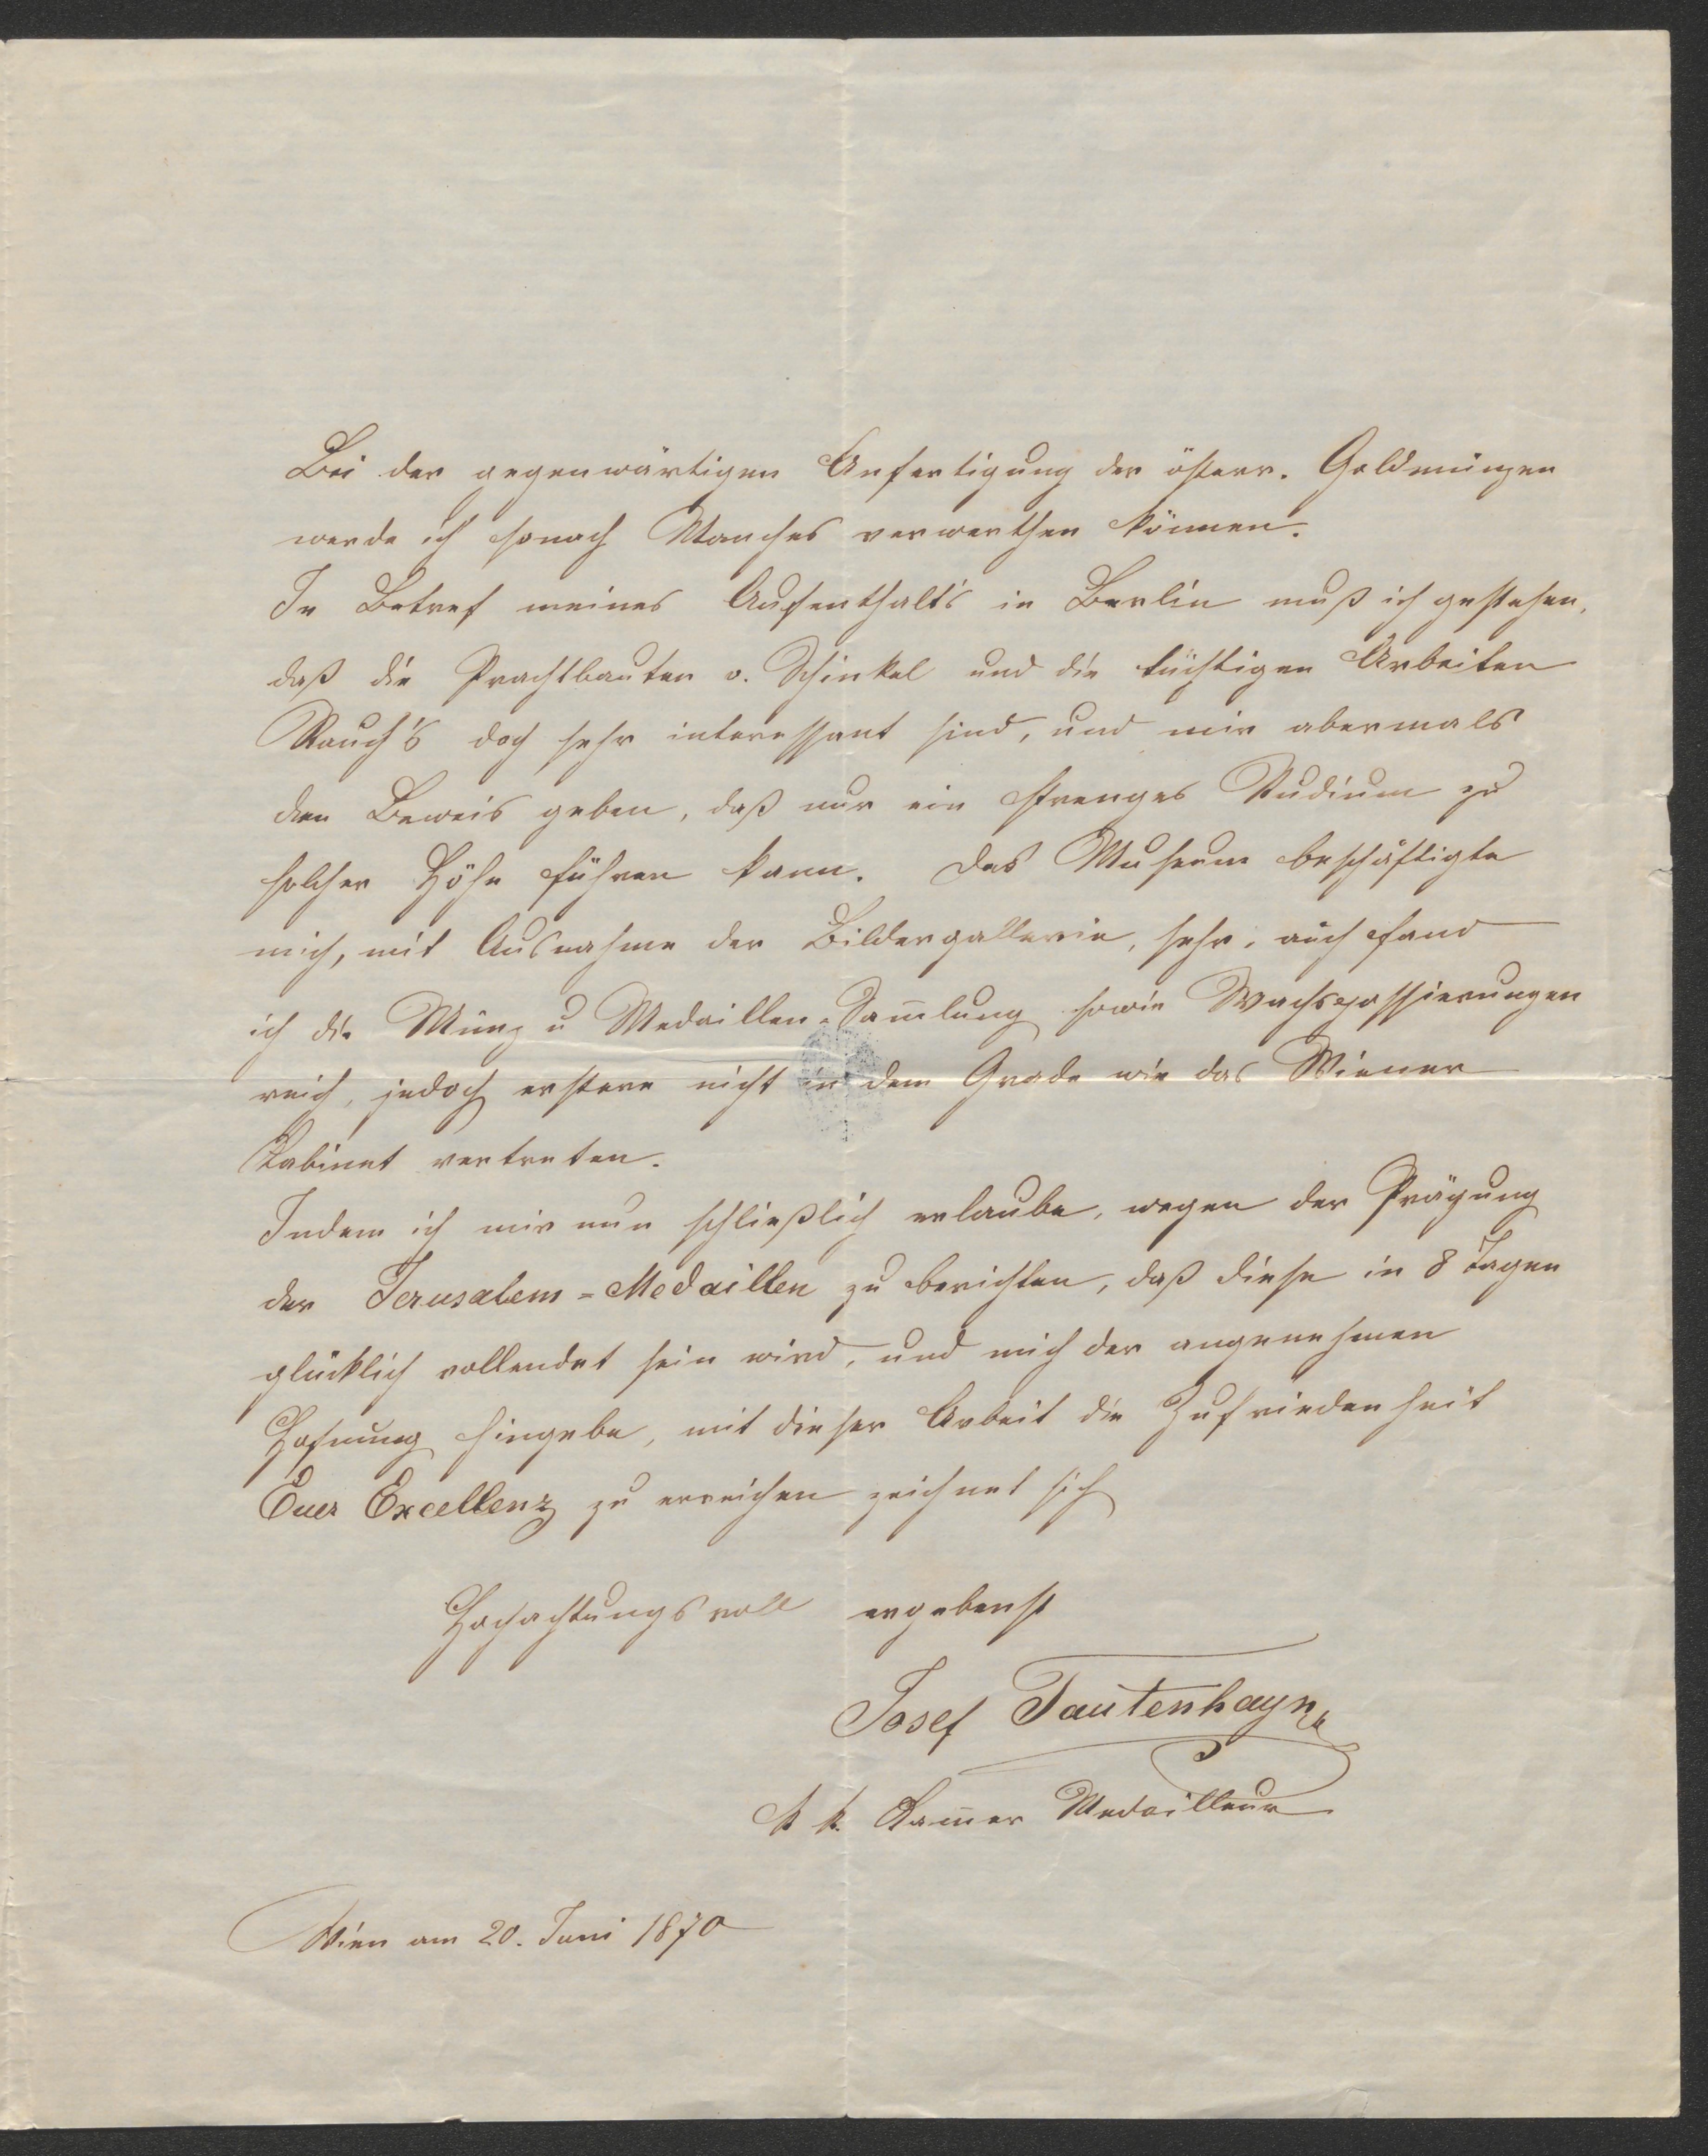 Bei der gegenwärtigen Anfertigung der österr. Goldmünzen
werde ich sonach Manches verwerthen können.
In Betref meines Aufenthalt's in Berlin muß ich gestehen,
daß die Prachtbauten v. Schinkel und die tüchtigen Arbeiten
Rauch's doch sehr interessant sind, und mir abermals
den Beweis geben, daß nur ein strenges Studium zu
solcher Höhe führen kann. Das Museum beschäftigte
mich, mit Ausnahme der Bildergallerie, sehr, auch fand
ich die Münz u Medaillen-Sam̅lung sowie Wachspossierungen
reich, jedoch erstere nicht in dem Grade wie das Wiener
Kabinet vertreten.
Indem ich mir nun schließlich erlaube, wegen der Prägung
der Jerusalem-Medaillen zu berichten, daß diese in 8 Tagen
glücklich vollendet sein wird, und mich der angenehmen
Hofnung hingebe, mit dieser Arbeit die Zufriedenheit
Euer Excellenz zu erreichen zeichnet sich
Hochachtungsvoll ergebenst
Josef Tautenhayn
k k. Kam̅er Medailleur
Wien am 20. Juni 1870